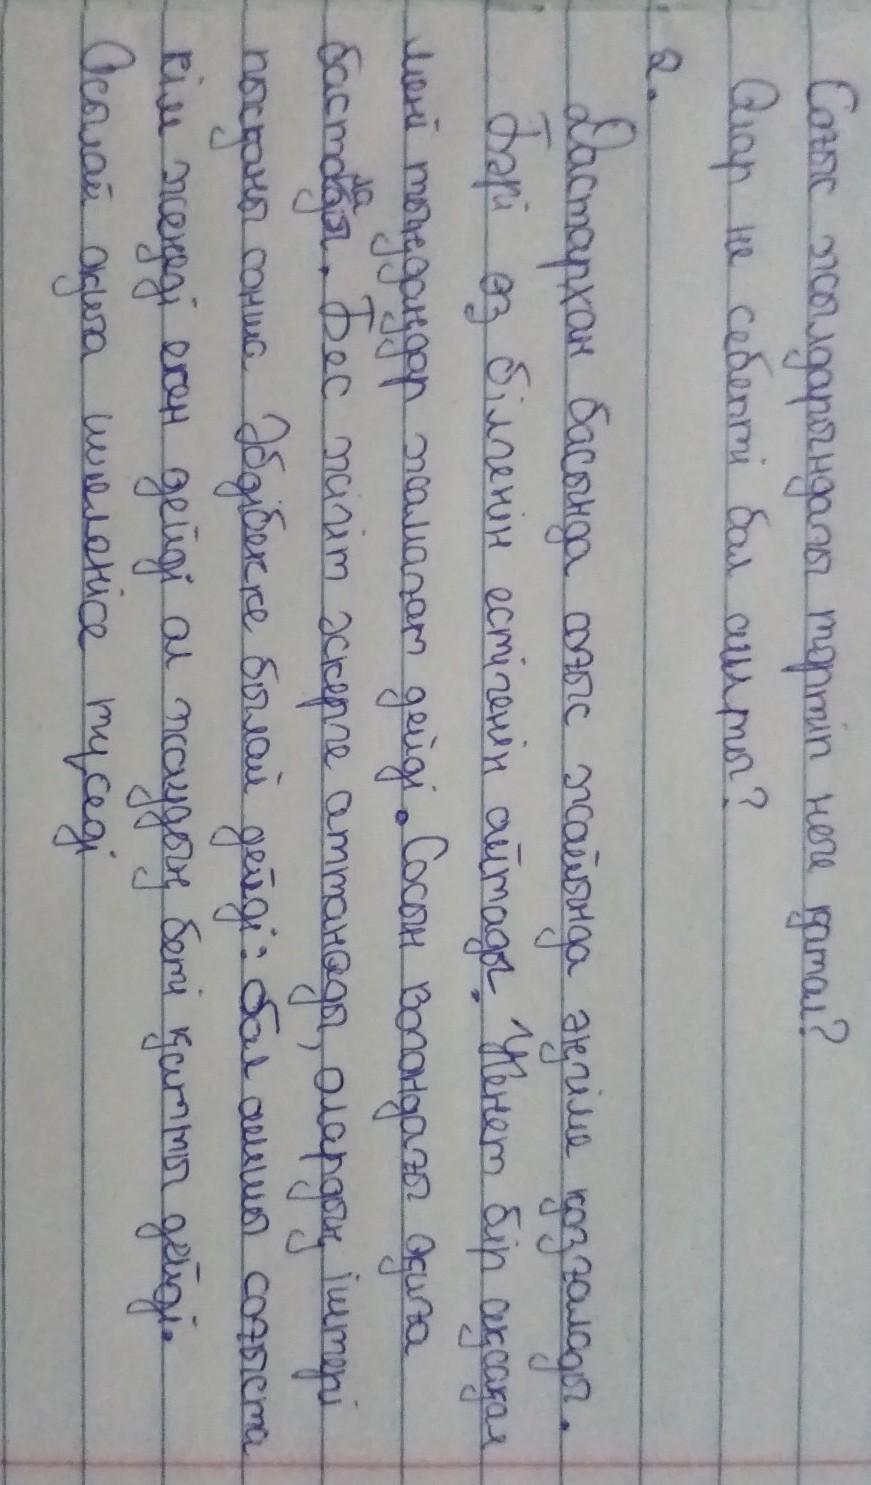 Соғыс жылдарындағы тәртіп неге қатал?
Олар не себепті бал ашты?
2.
Дастархан басында соғыс жайында әңгіме қозғалады.
Бәрі өз білгенін естігенін айтады. Кенет бір ақсақал
мені тыңдаңдар жамағат дейді. Сосын вагондағы оқиға
басталады. Бес жігіт әскерге аттанады, олардың іштері
пысқаны сонша Әбдібекке былай дейді: бал ашшы соғыста
кім жеңеді екен дейді ал жаудың беті қатты дейді.
Осылай оқиға шиеленісе түседі